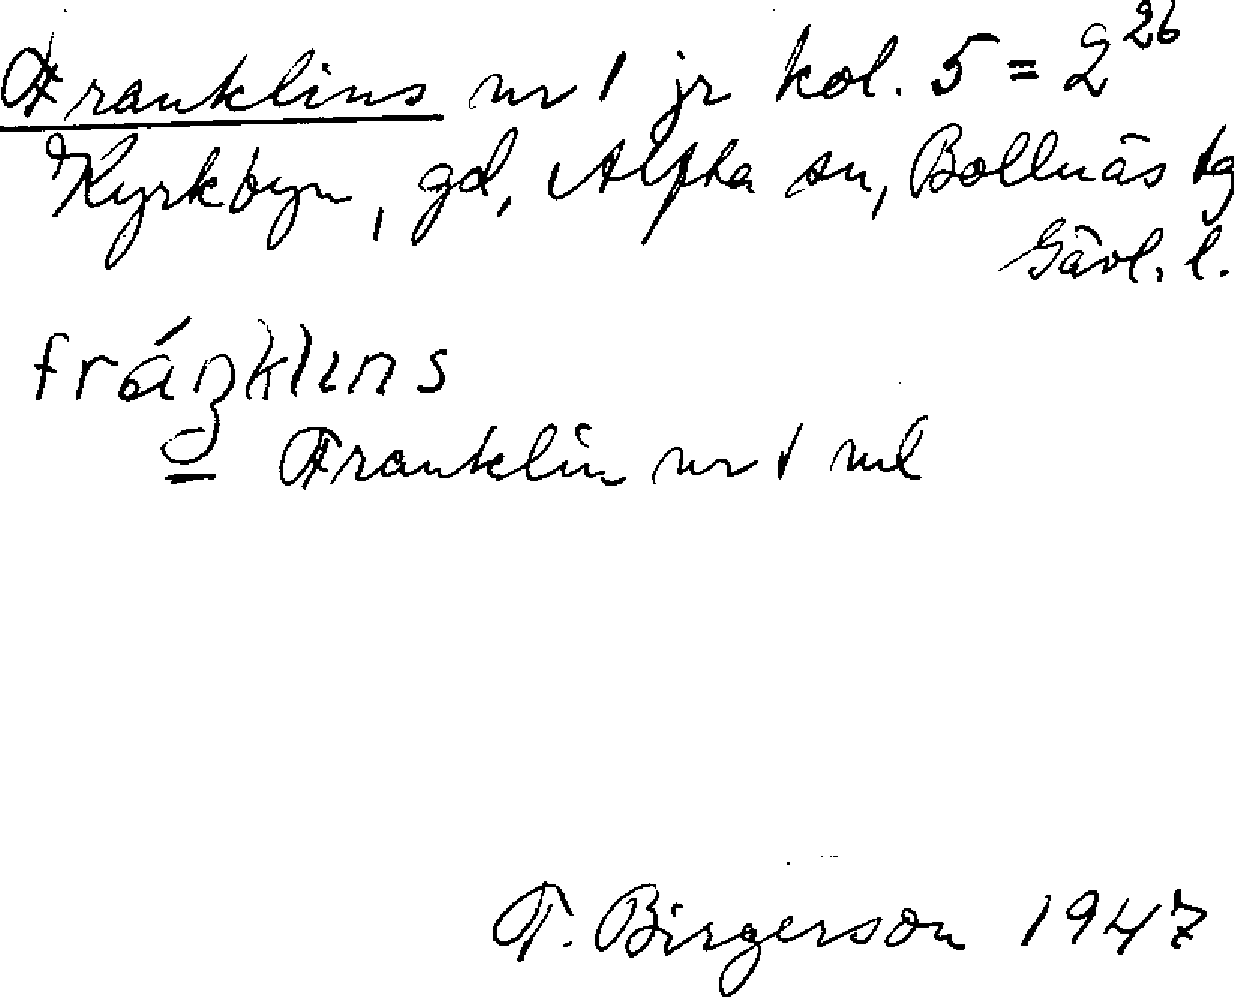 Franklins nr 1 jr kol. 5 = 2²⁶
Kyrkbyn, gd, Alfta sn, Bollnäs tg
Gävl. l.
fráŋklɩns
= Franklin nr 1 ml
T. Birgerson 1947